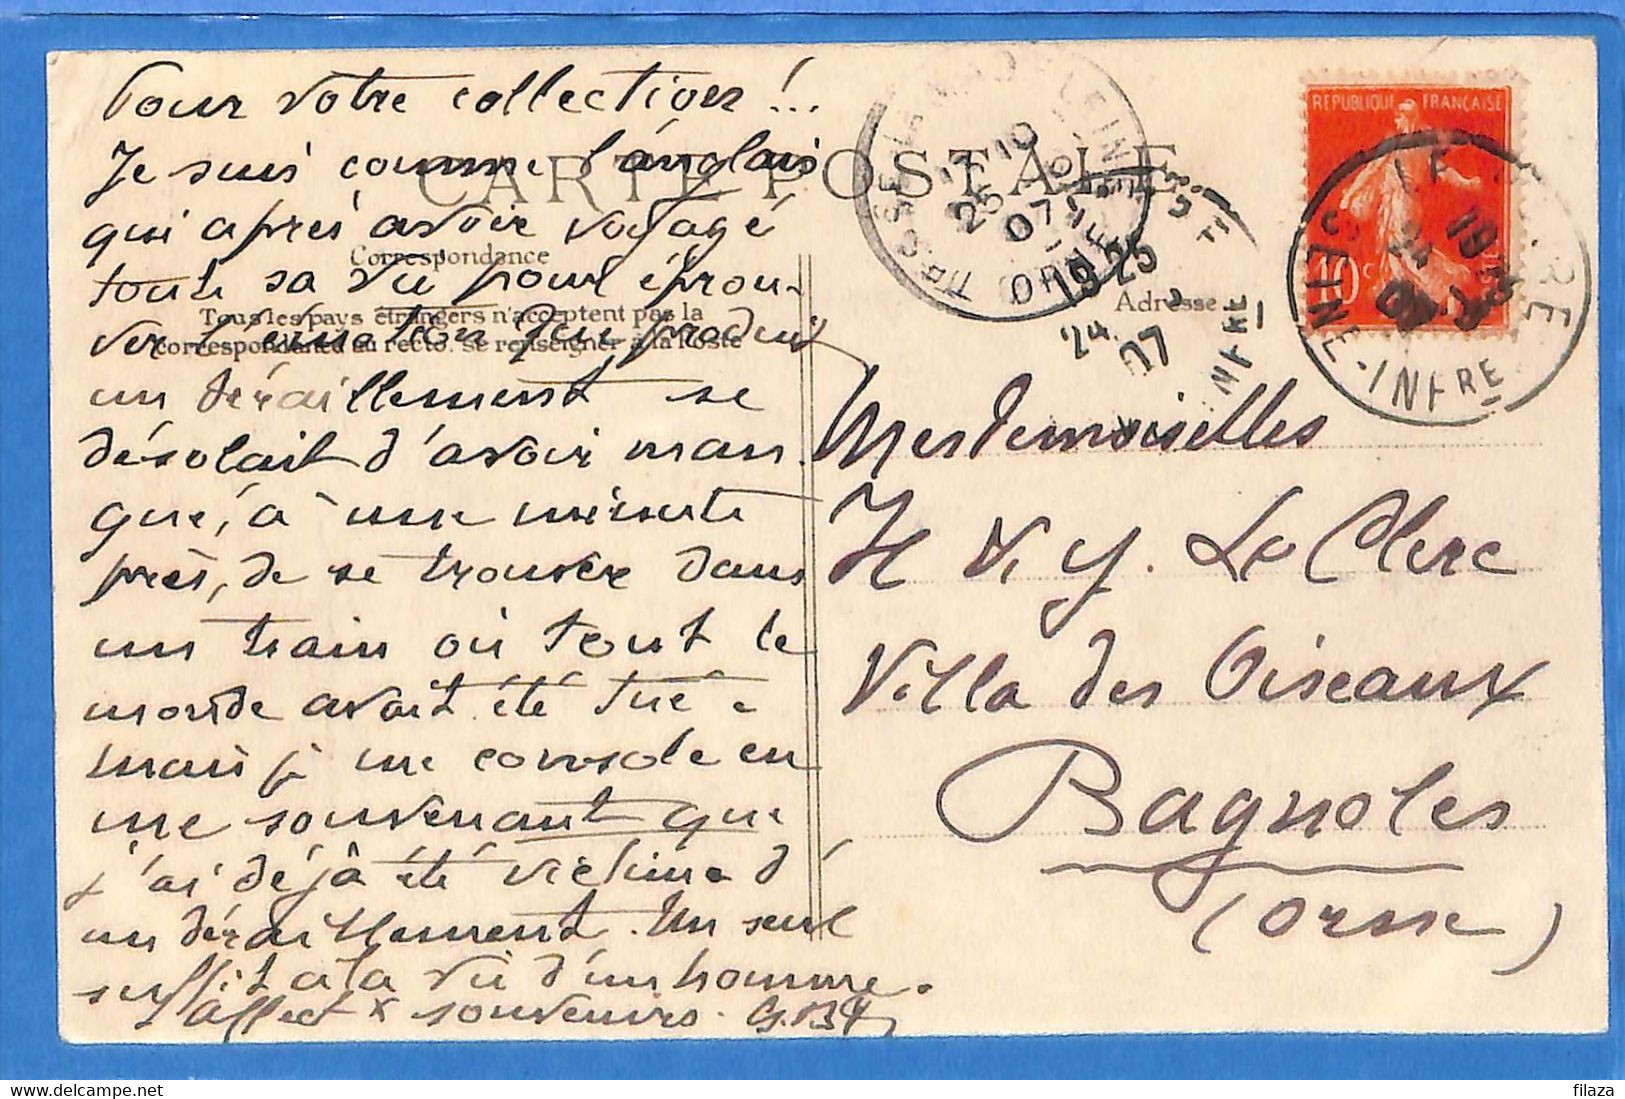 Pour votre collection !..
Je suis comme l'anglais
qui après avoir voyagé
toute sa vie pour éprou-
ver l'émotion que produit
un déraillement se
désolait d'avoir man
qué, à une minute
près, de se trouver dans
un train où tout le
monde avait été tué -
mais je me console en
me souvenant que
j'ai déjà été victime d'
un déraillement. Un seul
suffit à la vie d'un homme.
affect x souvenirs.
CARTE POSTALE
Correspondance
Tous les pays étrangers n'acceptent pas la
correspondance au recto, se renseigner à la Poste
Adresse
REPUBLIQUE FRANÇAISE
10 c
17 10
25
07
ORNE
19 25
24
07
INFRE
LE
19
24
07
SEINE-INFRE
Mesdemoiselles
H & Y. Le Clerc
Villa des Oiseaux
Bagnoles
(Orne)
© delcampe.net
filaza